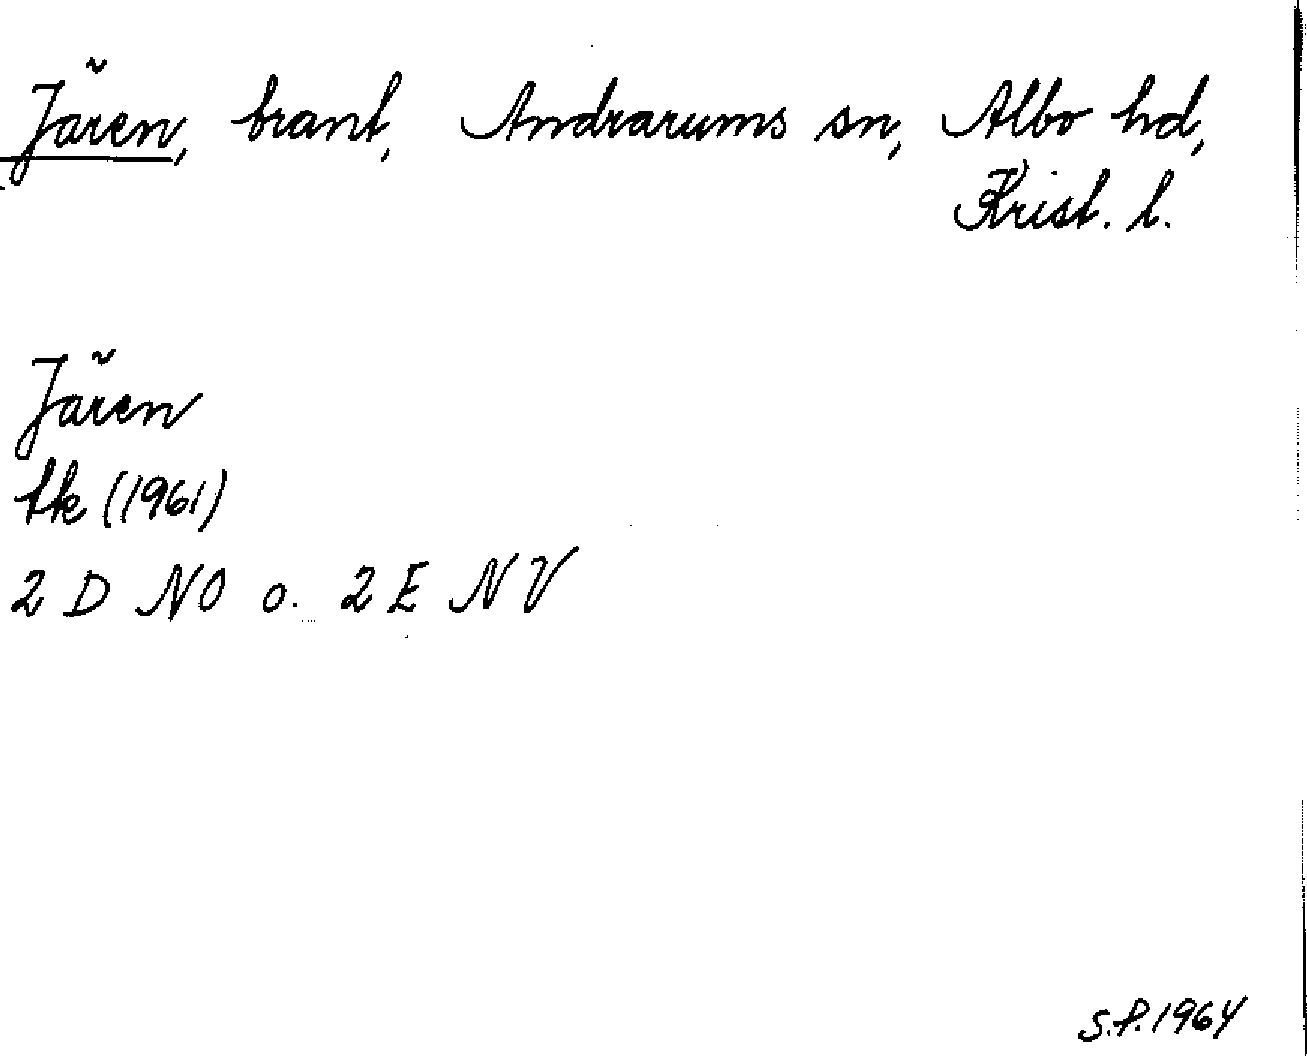 Jären, brant, Andrarums sn, Albo hd,
Krist. l.
Jären
tk (1961)
2 D NO o. 2 E NV
S.P. 1964